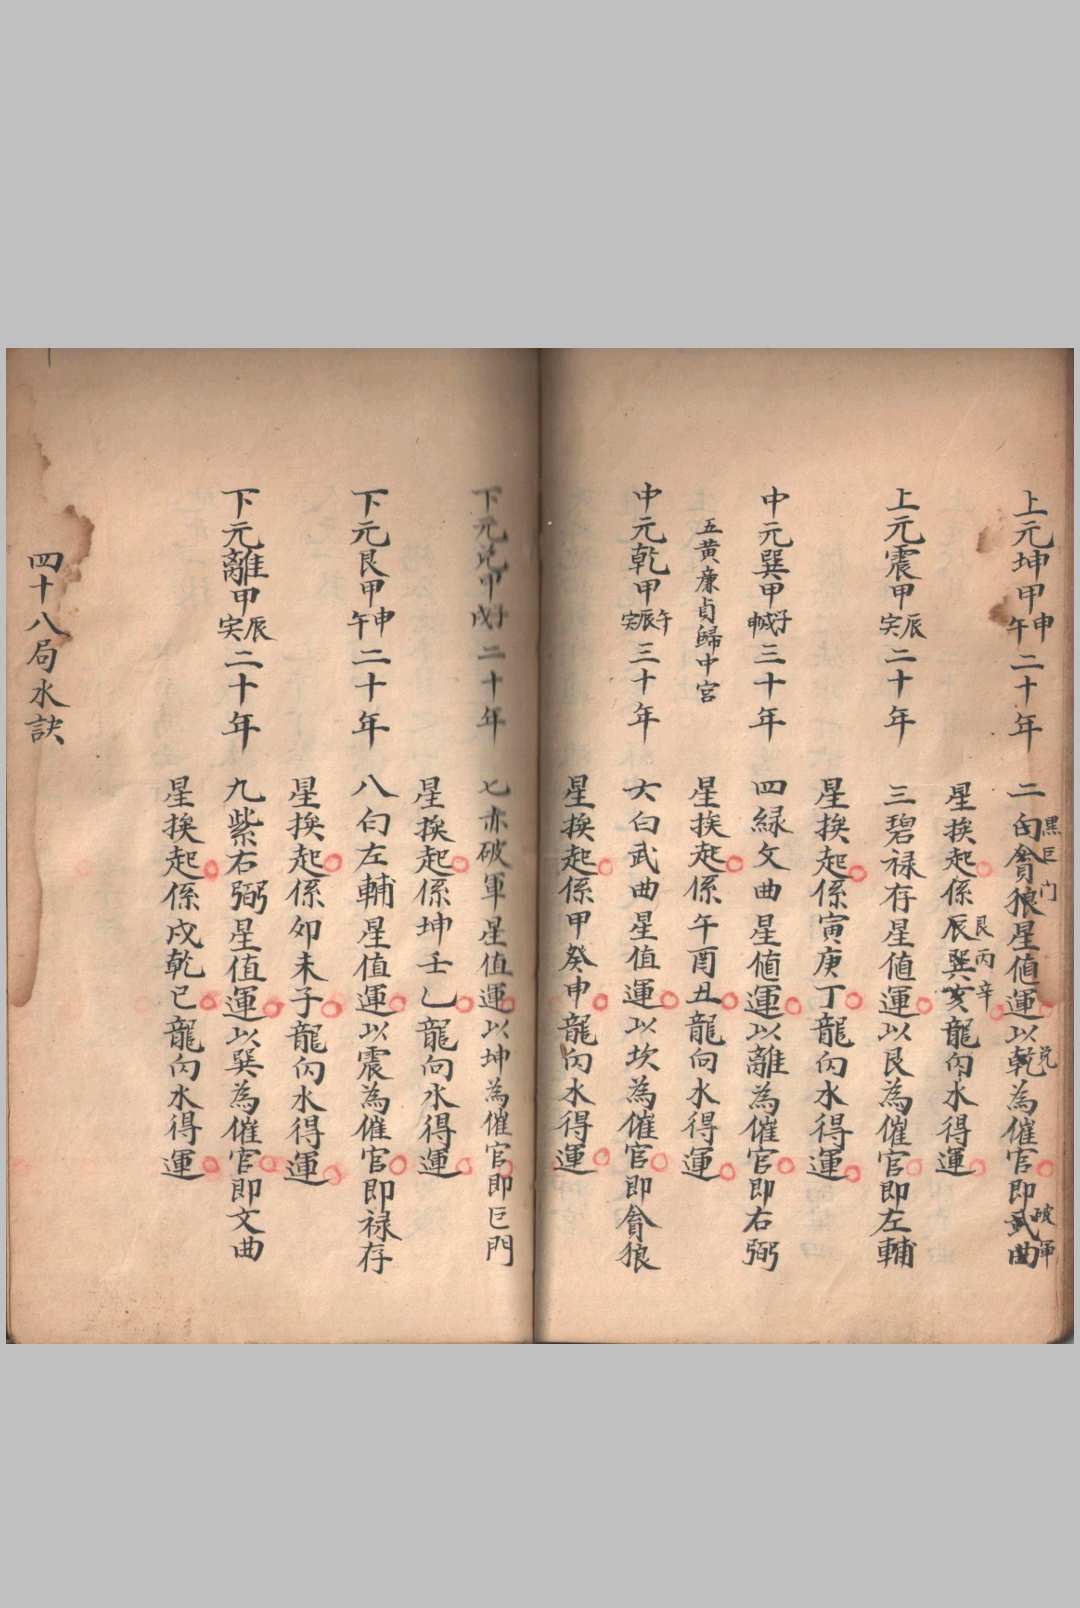 上元坤甲申午二十年 二白貪狼星值運以乾為催官即武曲
黑巨门
兌
破軍
星換起係辰巽亥龍向水得運
艮丙辛
上元震甲辰寅二十年 三碧禄存星值運以艮為催官即左輔
星換起係寅庚丁龍向水得運
中元巽甲子戌申三十年 四緑文曲星值運以離為催官即右弼
星換起係午酉丑龍向水得運
五黄廉貞歸中宮
中元乾甲午辰寅三十年 六白武曲星值運以坎為催官即貪狼
星換起係甲癸申龍向水得運
下元兌甲子戌二十年 七赤破軍星值運以坤為催官即巨門
星換起係坤壬乙龍向水得運
下元艮甲申午二十年 八白左輔星值運以震為催官即禄存
星換起係卯未子龍向水得運
下元離甲辰寅二十年 九紫右弼星值運以巽為催官即文曲
星換起係戌乾巳龍向水得運
四十八局水訣